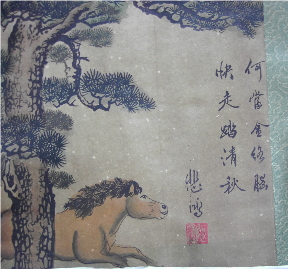 何當金络腦
快走踏清秋
悲鴻